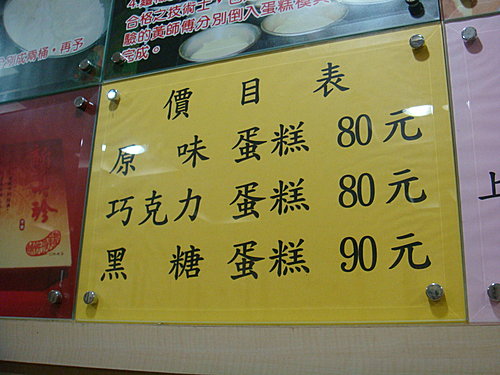 分別成兩桶，再予
合格之技術士
驗的黃師傅分別倒入蛋糕模具
完成。
價目表
原味蛋糕 80元
巧克力蛋糕 80元
黑糖蛋糕 90元
珍
上